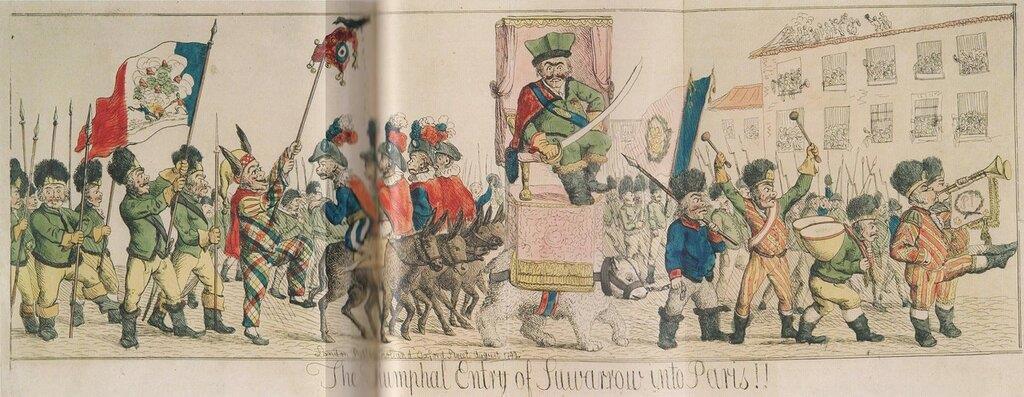 London Oxford Street August 1799
The umphal Entry of Suwarrow into Paris!!